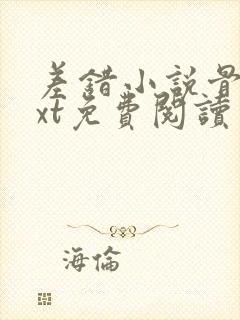 差錯小說骨
xt免費閱讀
海倫